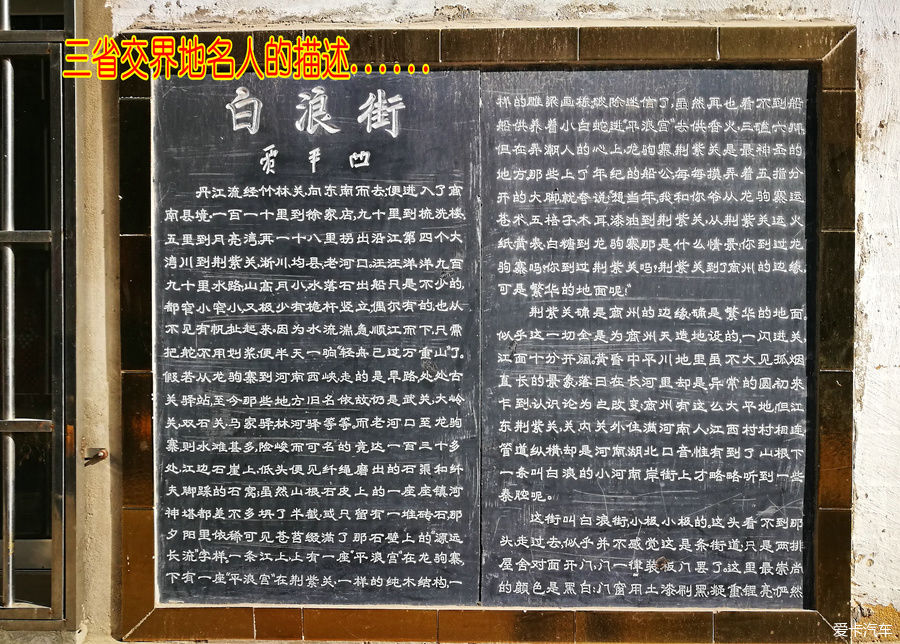 三省交界地名人的描述......
白浪街
贾平凹
丹江流经竹林关,向东南而去,便进入了商
南县境,一百一十里到徐家店,九十里到梳洗楼,
五里到月亮湾,再一十八里拐出沿江第四个大
湾川到荆紫关,淅川,均县,老河口。汪汪洋洋九百
九十里水路,山高月小,水落石出,船只是不少的,
都窄小窄小,又极少有桅杆竖立,偶尔有的,也从
不见有帆扯起来。因为水流湍急,顺江而下,只需
把舵,不用划桨,便半天一晌“轻舟已过万重山”了。
假若从龙驹寨到河南西峡,走的是旱路,处处古
关驿站,至今那些地方旧名依故,仍是武关,大岭
关,双石关,马家驿,林河驿等等。而老河口至龙驹
寨,则水滩甚多,险峻而可名的竟达一百三十多
处,江边石崖上,低头便见纤绳磨出的石渠和纤
夫脚踩的石窝;虽然山根石皮上的一座座镇河
神塔都差不多坍了半截,或只留有一堆砖石,那
夕阳里依稀可见苍苔缀满了那石壁上的“源远
长流”字样。一条江上,上有一座“平浪宫”在龙驹寨,
下有一座“平浪宫”在荆紫关,一样的纯木结构,一
样的雕梁画栋。破除迷信了,虽然再也看不到船
船供养着小白蛇,进“平浪宫”去供香火,三磕六拜,
但在弄潮人的心上,龙驹寨,荆紫关是最神圣的
地方。那些上了年纪的船公,每每摸弄着五指分
开的大脚,就夸说:“想当年,我和你爷从龙驹寨运
苍术,五格子,木耳,漆油到荆紫关,从荆紫关运火
纸,黄表,白糖到龙驹寨,那是什么情景!你到过龙
驹寨吗?你到过荆紫关吗?荆紫关到了商州的边缘,
可是繁华的地面呢!”
荆紫关确是商州的边缘,确是繁华的地面。
似乎这一切全是为商州天造地设的,一闪进关,
江面十分开阔,黄昏中平川地里虽不大见孤烟
直长的景象,落日在长河里却是异常的圆。初来
乍到,认识论为之改变:商州有这么大平地!但江
东荆紫关,关内关外住满河南人,江西村村相连,
管道纵横,却是河南,湖北口音,惟有到了山根下
一条叫白浪的小河南岸街上,才略略听到一些
秦腔呢。
这街叫白浪街,小极小极的。这头看不到那
头,走过去,似乎并不感觉这是条街道,只是两排
屋舍对面开门,门一律装板门罢了。这里最崇尚
的颜色是黑白:门窗用土漆刷黑,凝重,锃亮,俨然
爱卡汽车